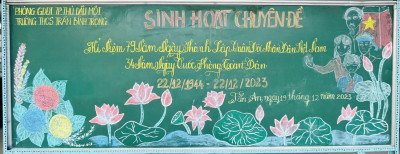 PHÒNG GD-ĐT TP THỦ DẦU MỘT
TRƯỜNG THCS TRẦN BÌNH TRỌNG
SINH HOẠT CHUYÊN ĐỀ
Kỉ Niệm 79 Năm Ngày Thành Lập Quân Đội Nhân Dân Việt Nam
34 Năm Ngày Quốc Phòng Toàn Dân
22/12/1944 - 22/12/2023
Tân An, ngày 19 tháng 12 năm 2023